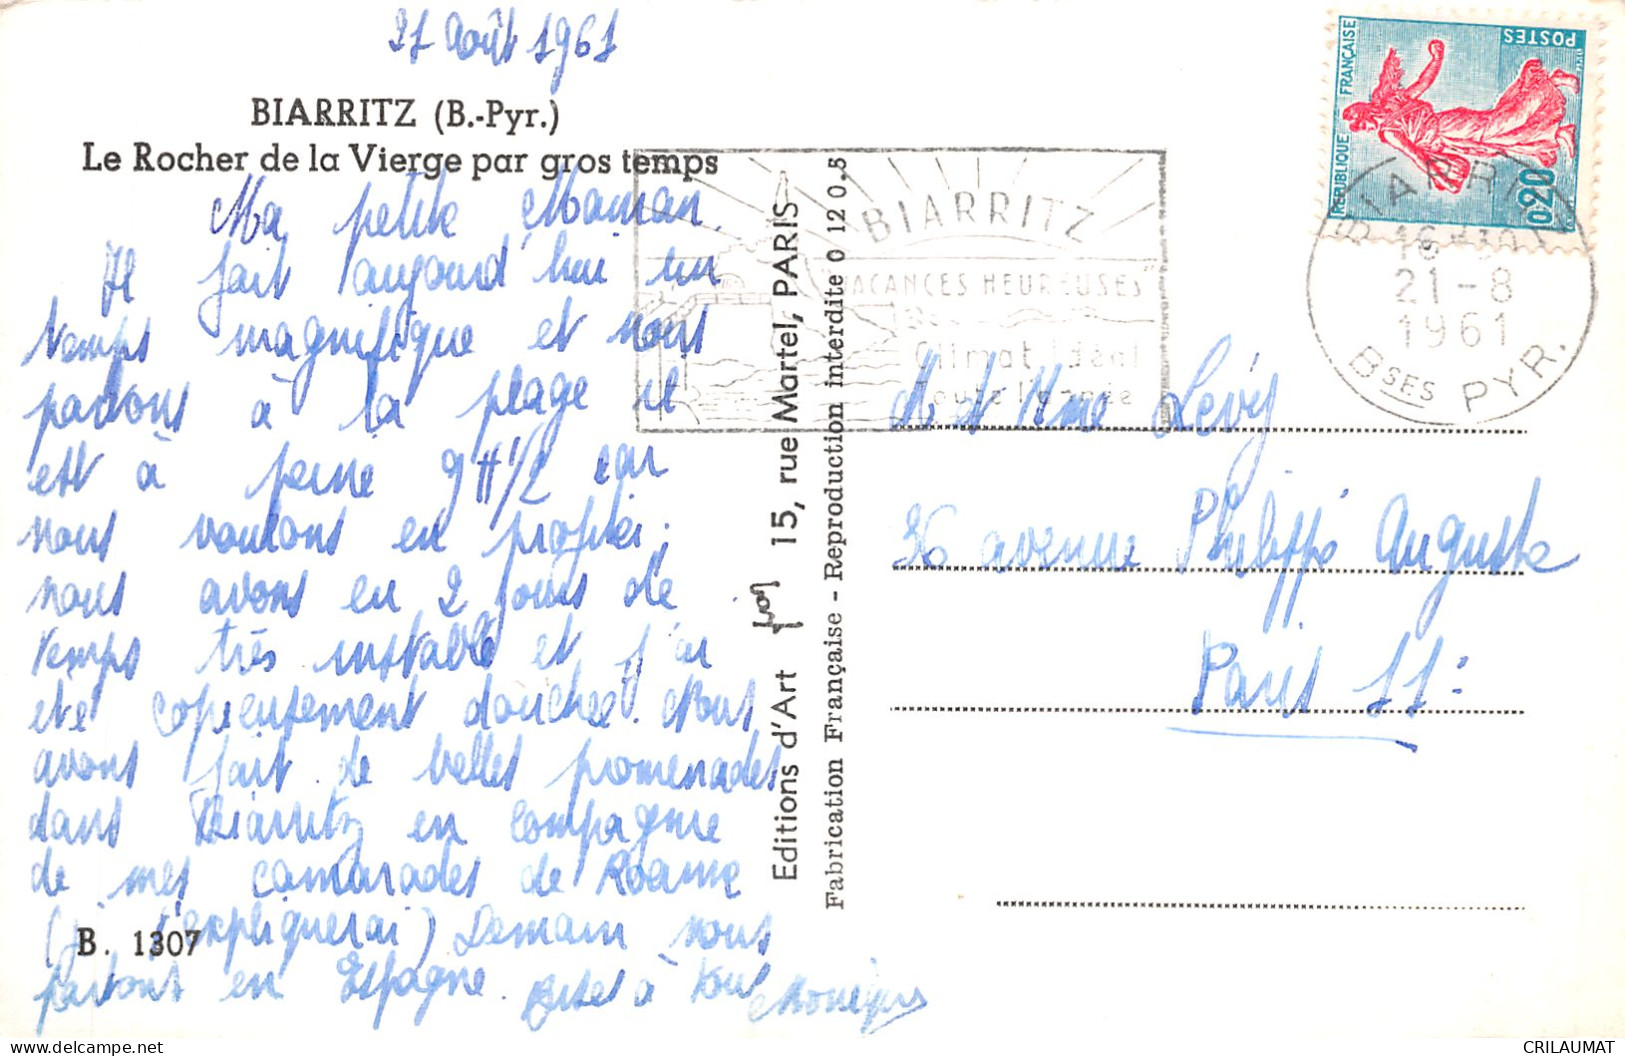 21 Août 1961
BIARRITZ (B.-Pyr.)
Le Rocher de la Vierge par gros temps
Ma petite Maman,
Il fait aujourd'hui un
temps magnifique et nous
partons à la plage il
est à peine 9 H 1/2 car
nous voulons en profiter ;
nous avons eu 2 jours de
temps très instable et j'ai
été copieusement douchée. Nous
avons fait de belles promenades
dans Biarritz en compagnie
de mes camarades de Roanne
(je t'expliquerai) Demain nous
partons en Espagne. Bises à tous
Monique
B. 1307
Editions d'Art yvon 15, rue Martel, PARIS
Fabrication Française - Reproduction interdite 0 12 0.5
BIARRITZ
"VACANCES HEUREUSES"
Climat idéal
toute l'année
REPUBLIQUE FRANÇAISE
POSTES
0,20
BIARRITZ
21-8
1961
BSES PYR.
M. et Mme Levy
36 avenue Philippe Auguste
Paris 11e
delcampe.net
CRILAUMAT